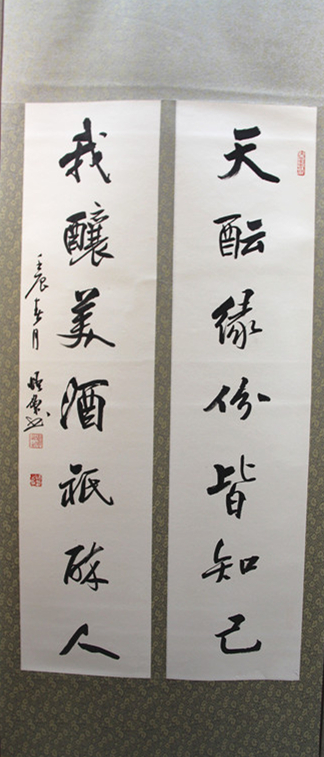 天酝缘份皆知己
我釀美酒祇醉人
壬辰春月